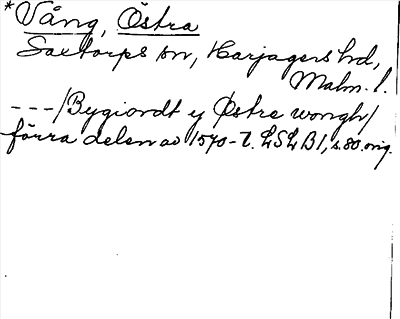 *Vång, Östra
Saxtorps sn, Harjagers hd,
Malm. l.
---/Bygiordt y Østre wongh/
förra delen av 1570-t. LSLB1, s. 80. orig.